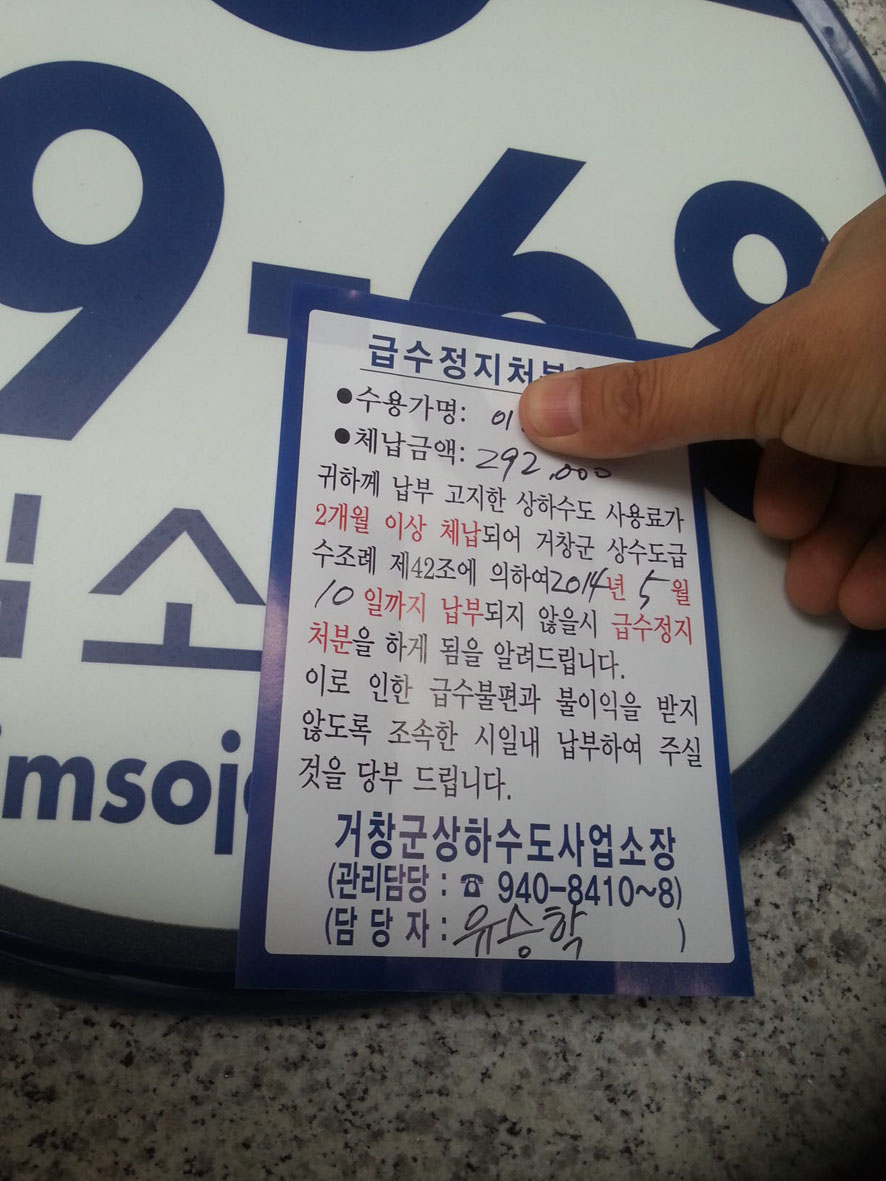 9-6
소
imsoj
급수정지처분
●수용가명: 이
●체납금액: 292,000
귀하께 납부 고지한 상하수도 사용료가
2개월 이상 체납되어 거창군 상수도급
수조례 제42조에 의하여2014년 5월
10일까지 납부되지 않을시 급수정지
처분을 하게 됨을 알려드립니다.
이로 인한 급수불편과 불이익을 받지
않도록 조속한 시일내 납부하여 주실
것을 당부 드립니다.
거창군상하수도사업소장
(관리담당 : ☎ 940-8410~8)
(담 당 자 : 유승학 )